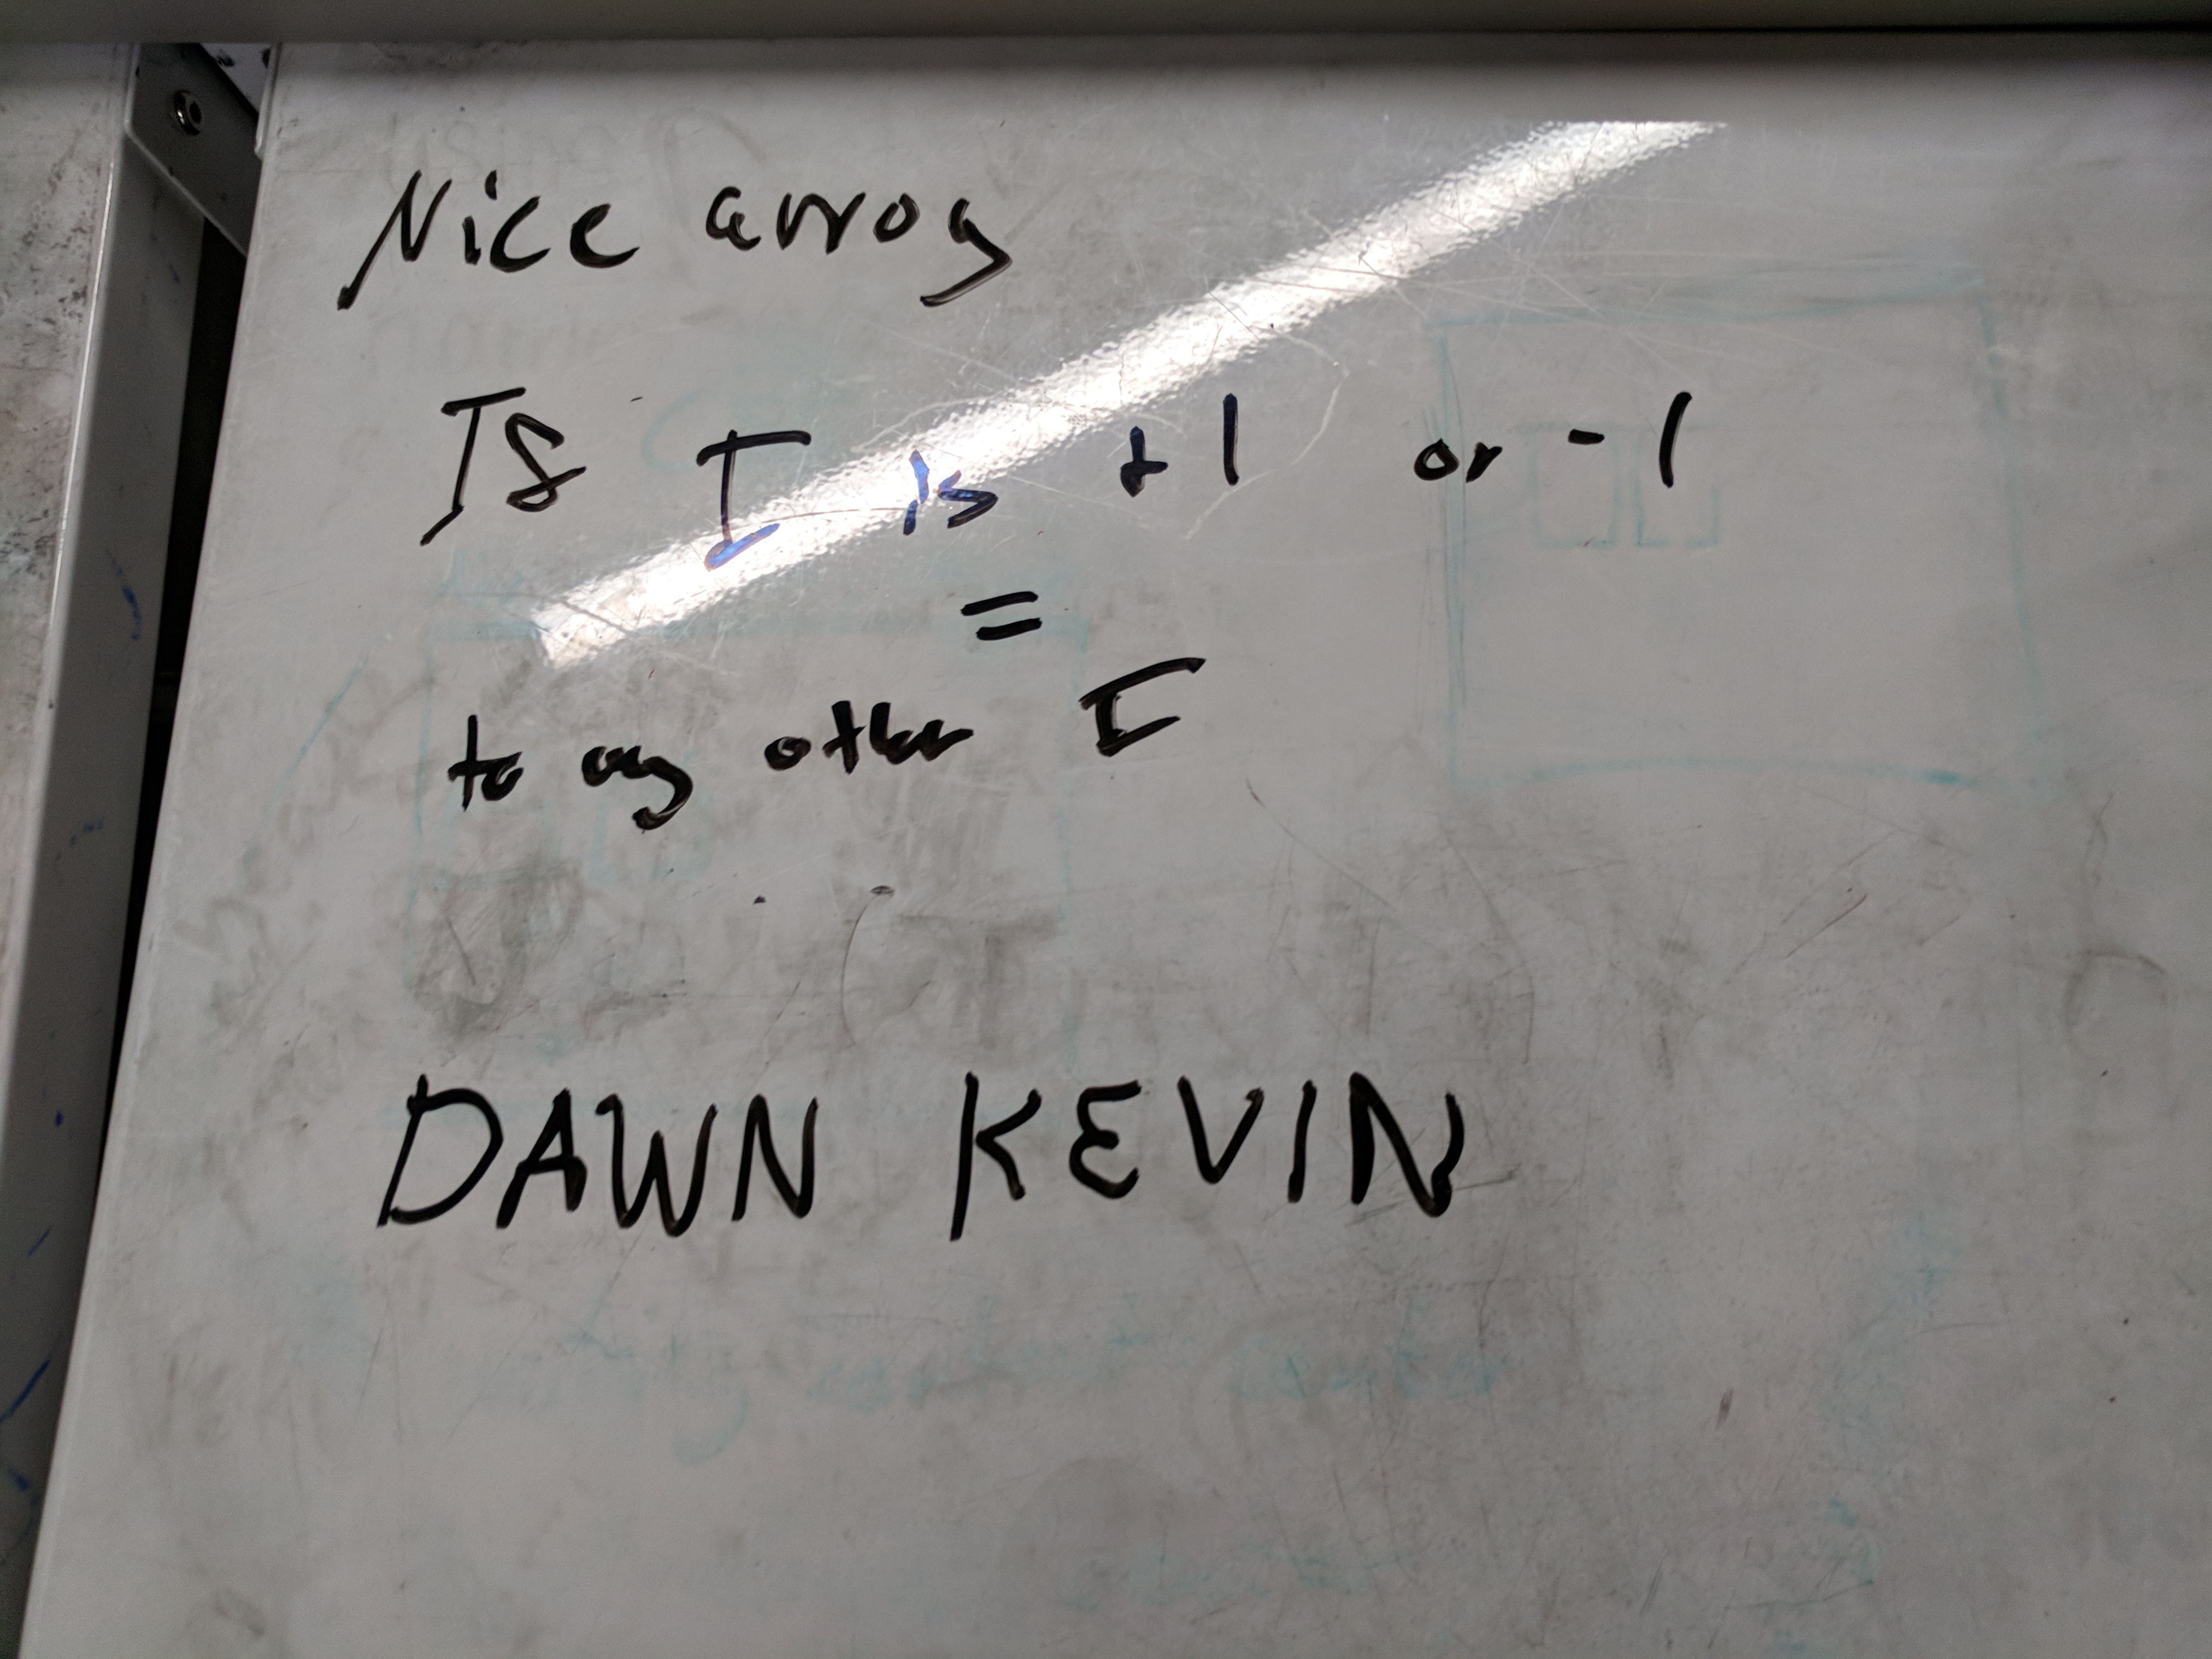 Nice array
If I is +1 or -1
=
to any other I
DAWN KEVIN